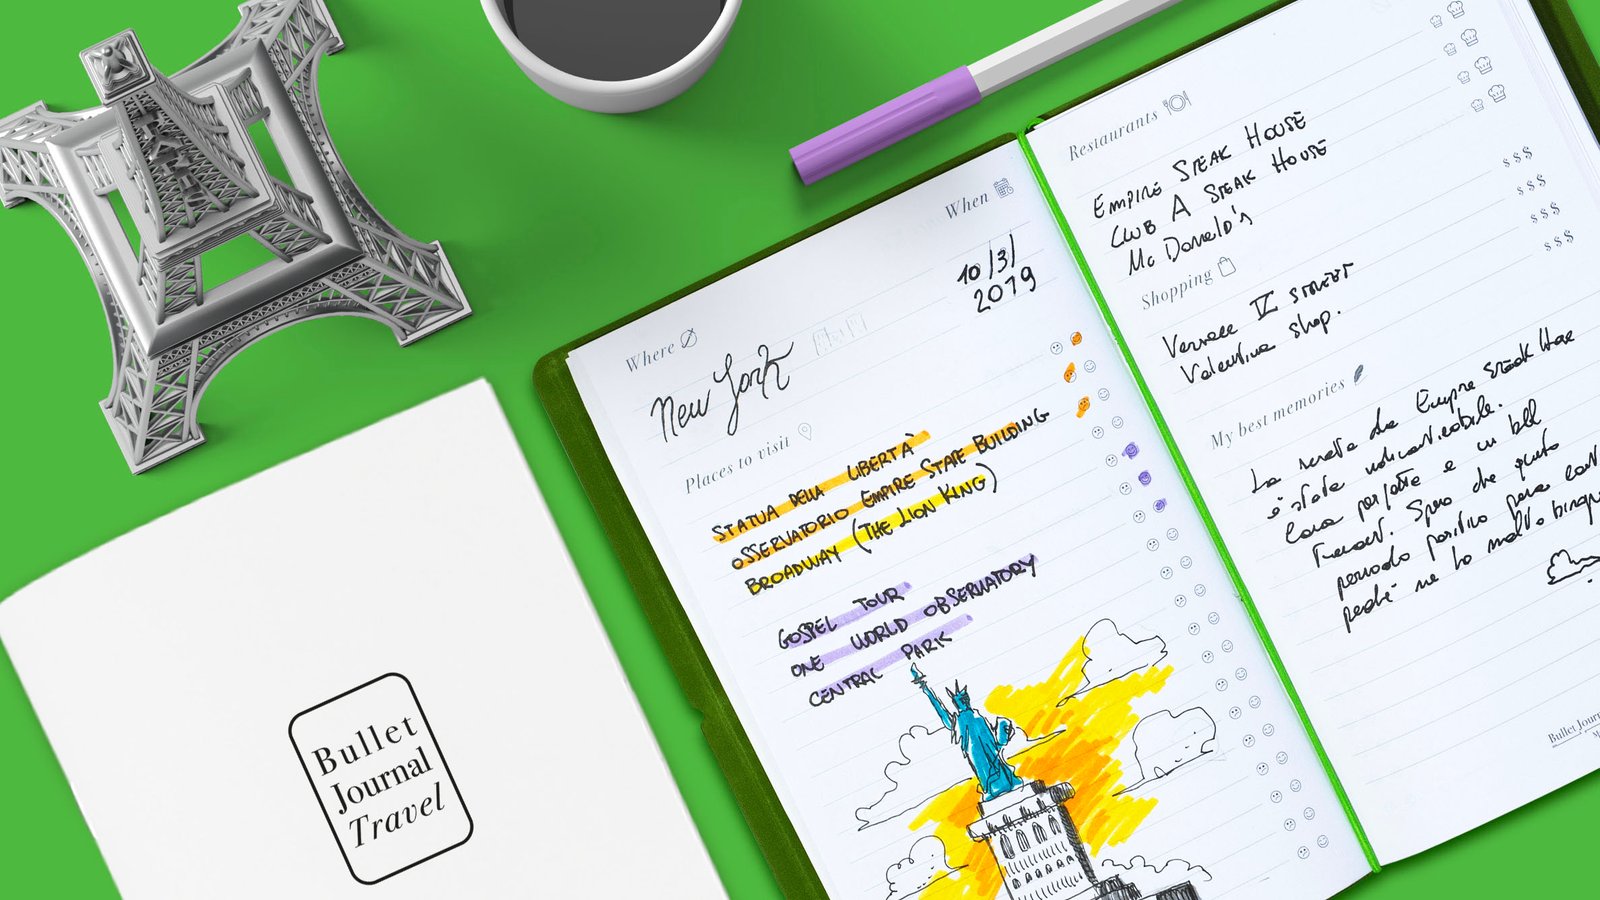 Bullet
Journal
Travel
Where
When
New York
10/3/
2019
Places to visit
STATUA DELLA LIBERTÀ
OSSERVATORIO EMPIRE STATE BUILDING
BROADWAY (THE LION KING)
GOSPEL TOUR
ONE WORLD OBSERVATORY
CENTRAL PARK
Restaurants
EMPIRE STEAK HOUSE
CLUB A STEAK HOUSE
Mc Donald's
Shopping
$$$
$$$
$$$
$$$
STREET
Valentino shop.
My best memories
La serata da Empire Steak House
è stata indimenticabile.
perfetta e un bel
Spero che questo
periodo positivo possa
perché ne ho molto
Bullet Jour